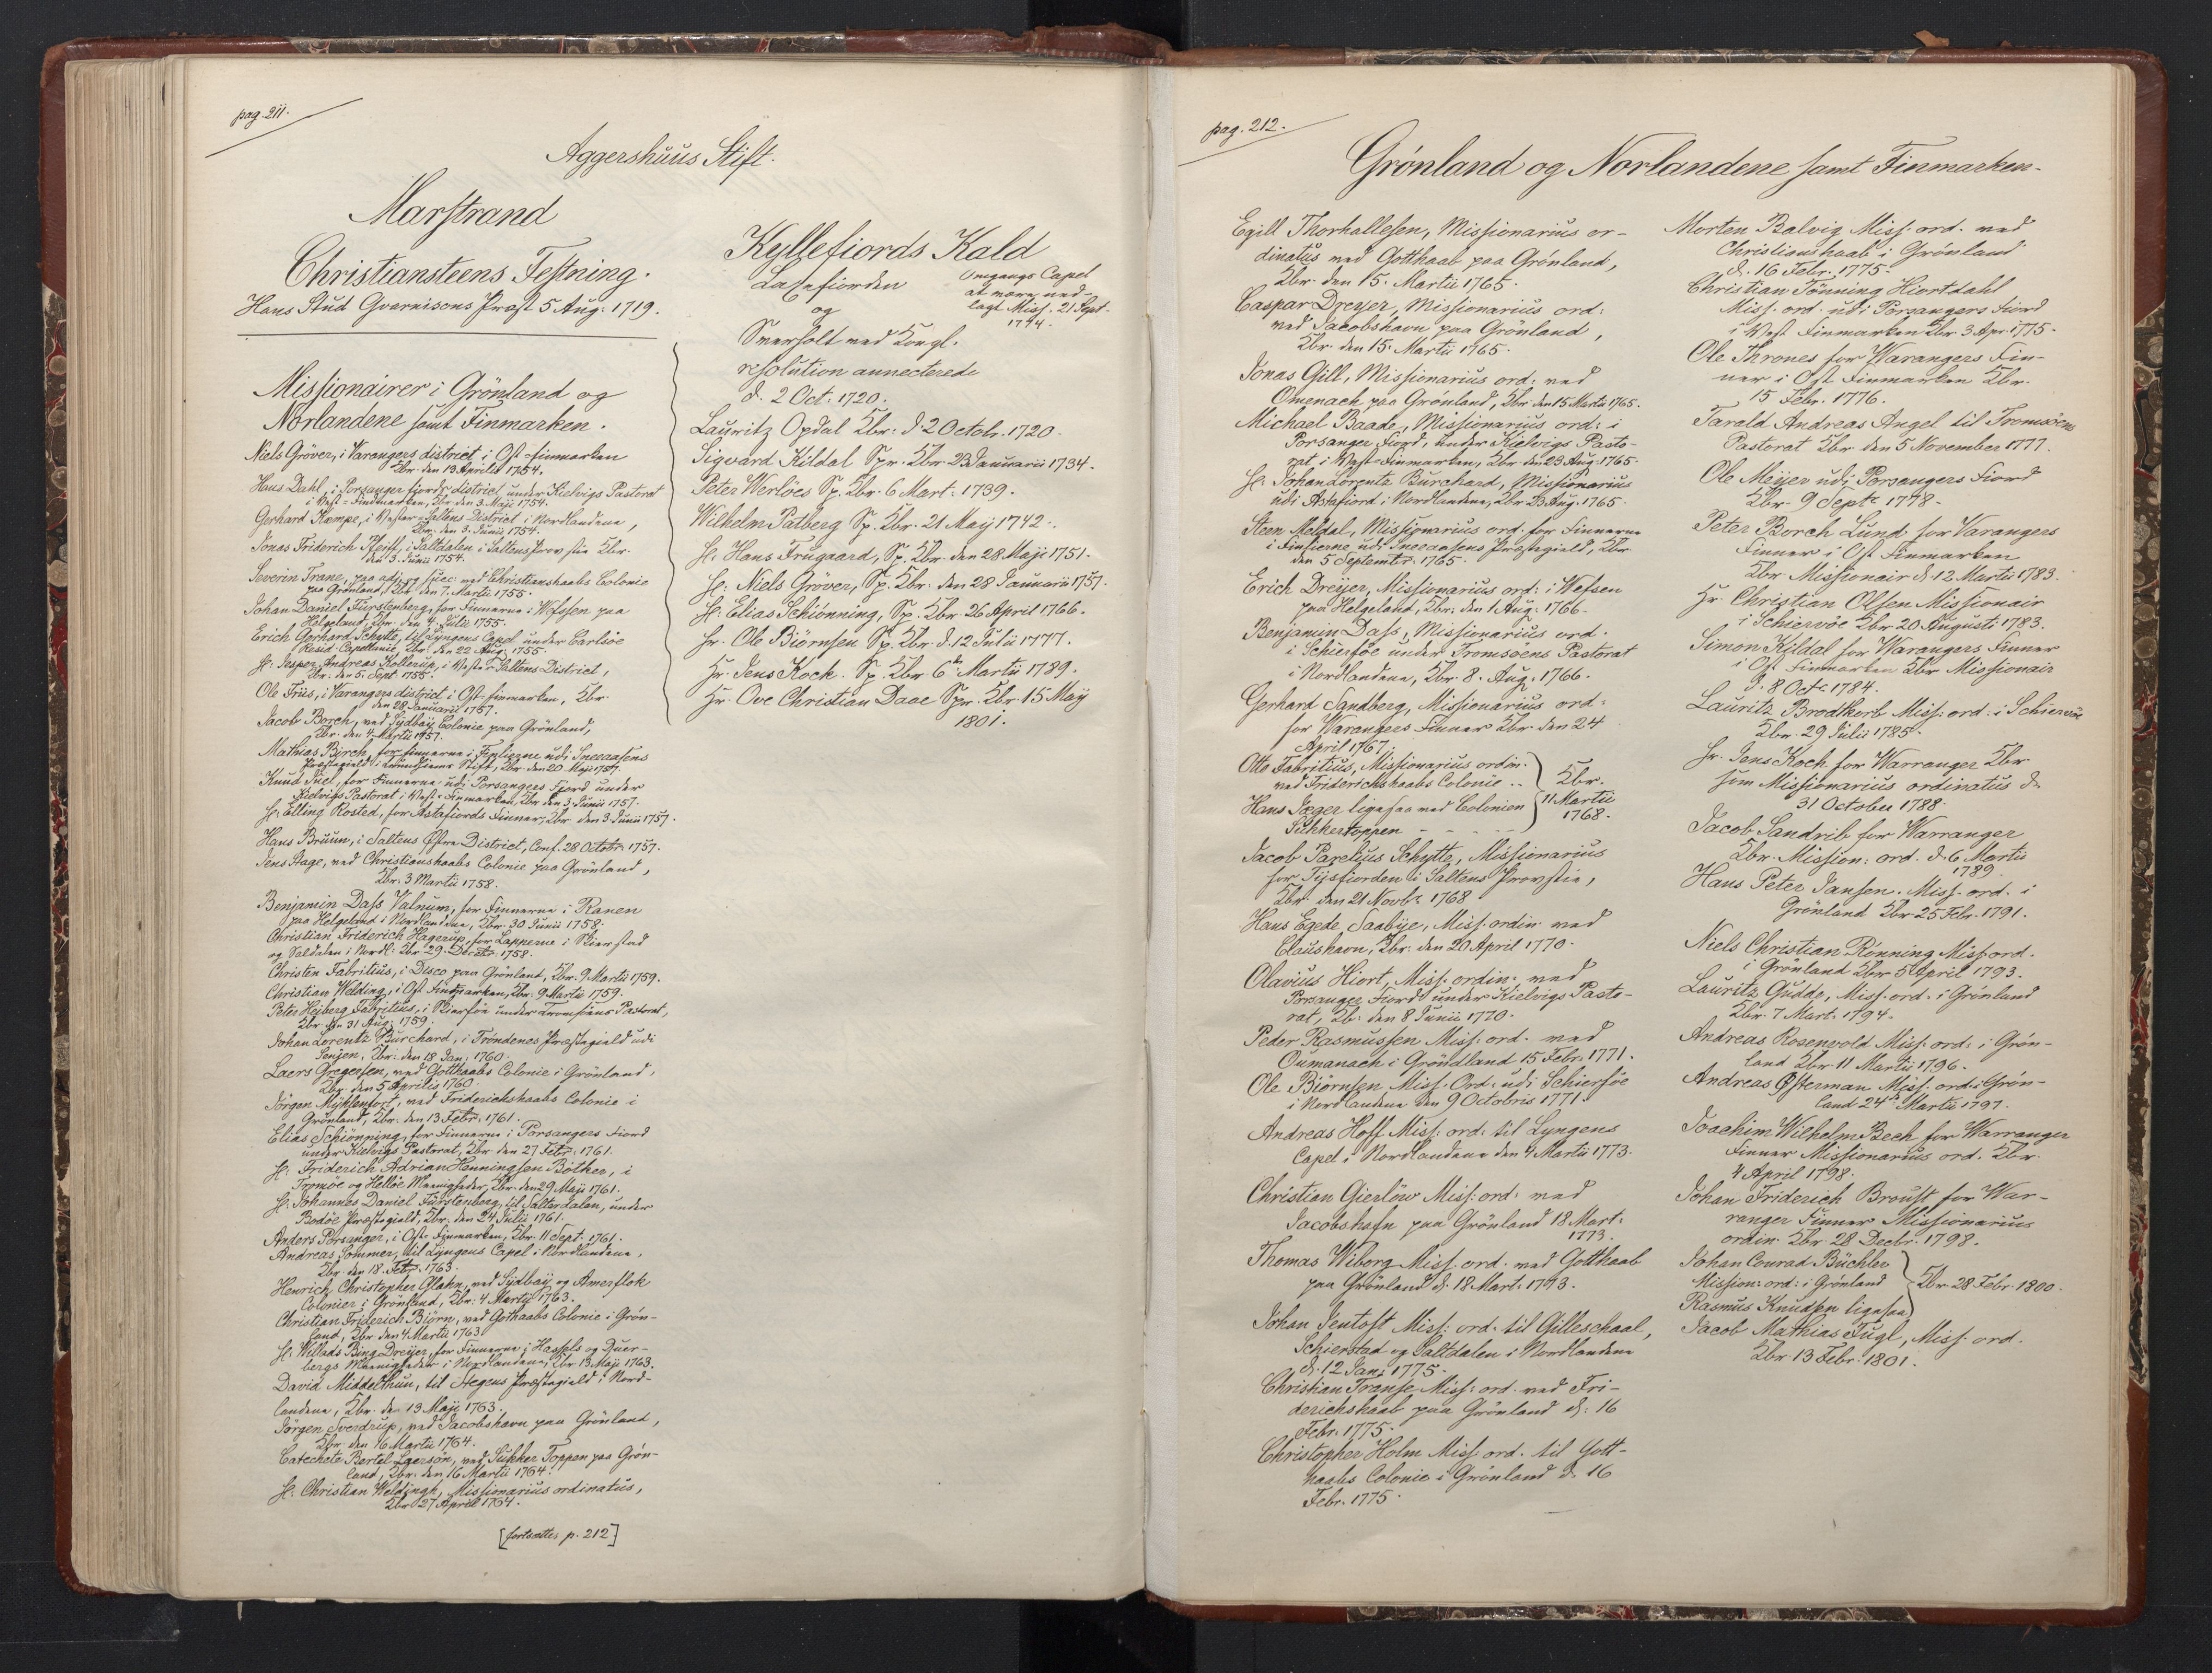 pag. 211.
Aggershuus Stift.
Marstrand
Christiansteens Festning.
Hans Stud Gvarnisons Præst 5 Aug: 1719.
Missionairer i Grönland og
Norlandene samt Finmarken.
Niels Gröver, i Varangers district i Ost-finmarken
Kbr. den 19 Aprilis 1754.
Hans Dahl, i Porsanger fjords district under Kielvigs Pastorat
i Vest-Findmarken, Kbr. den 3. Maji 1754.
Gerhard Kempe, i Vester-Saltens District i Nordlandene,
Kbr. den 3. Junii 1754.
Jonas Friderich Pfeiff, i Saltdalen i Saltens provstie Kbr.
den 3. Junii 1754.
Severin Trane, paa ved Christianshaabs Colonie
paa Grønland, Kbr. den 7. Martii 1755.
Johan Daniel Fürstenberg, for Finnerne i Wefsen paa
Helgeland, Kbr. den 4. Julii 1755.
Erich Gerhard Schytte, til Lyngens Capel under Carlsöe
Resid. Capellanie, Kbr. den 22 Aug. 1755.
H: Jesper Andreas Kollerup, i Vester-Saltens District,
Kbr. den 5. Sept. 1755.
Ole Friis, i Varangers district i Ost-finmarken, Kbr.
den 28 Januarii 1757.
Jacob Borch, ved Sydbay Colonie paa Grönland,
Kbr. den 4 Martii 1757.
Mathias Birch, for finnerne i Finlierne udi Sneeaasens
Præstegield i Trundhiems Stift, Kbr. den 20 Maji 1757.
Knud Juel, for Finnerne udi Porsangers Fjord under
Kielvigs Pastorat i Vest-Finmarken, Kbr. den 3. Junii 1757.
H: Elling Rosted, for Astafiords Finner, Kbr. den 3. Junii 1757.
Hans Bruun, i Saltens Østre District, Conf. 28 Octobr. 1757.
Jens Hage, ved Christianshaabs Colonie paa Grönland,
Kbr. 3 Martii 1758.
Benjamin Dass Valnum, for Finnerne i Ranen
paa Helgeland i Nordlandene, Kbr. 30 Junii 1758.
Christian Friderich Hagerup, for Lapperne i Skierstad
og Saldalen i Nordl: Kbr 29. Decebr. 1758.
Christen Fabritius, i Disco paa Grönland, Kbr. 9. Martii 1759.
Christian Welding, i Ost Findmarken, Kbr. 9 Martii 1759.
Peter Hejberg Fabritius, i Skierföe under Tromsöens Pastorat,
Kbr. den 31 Aug: 1759.
Johan Lorentz Burchard, i Trondenes Præstegield udi
Senjen, Kbr: den 18 Jan: 1760.
Laers Gregersen, ved Gotthaabs Colonie i Grönland,
Kbr. den 5 Aprilis 1760.
Jörgen Myhlenfort, ved Friderichshaabs Colonie i
Grönland, Kbr. den 13 Febr. 1761.
Elias Schiönning, for Finnerne i Porsangers Fiord
under Kielvigs Pastorat, Kbr. den 27 Febr. 1761.
H: Friderich Adrian Henningsen Bötker, i
Tromöe og Hellöe Meenigheder, Kbr. den 29 Maji 1761.
H: Johannes Daniel Fürstenberg, til Salterdalen, under
Bodöe Præstegield, Kbr. den 24 Julii 1761.
Anders Porsanger, i Ost-Finmarken, Kbr. 11 Sept. 1761.
Andreas Sommer, til Lyngens Capel i Nordlandene,
Kbr. den 18. Febr. 1763.
Henrich Christopher Glahn, ved Sydbay og Amerslok
Colonier i Grönland, Kbr: 4 Martii 1763.
Christian Friderich Biörn, ved Gothaabs Colonie i Grön-
land, Kbr den 4 Martii 1763.
H: Willads Bing Dreyer, for Finnerne i Hassels og Quer-
bergs Meenigheder i Nordlandene, Kbr. 13 Maji 1763.
David Middelthun, til Hegens Præstegield i Nord-
landene, Kbr. den 13 Maji 1763.
Jörgen Sverdrup, ved Jacobshavn paa Grönland,
Kbr. den 16 Martii 1764.
Catechete Bertel Laersön, ved Sukker Toppen paa Grön-
land, Kbr. den 16 Martii 1764.
H: Christian Weldingh, Missionarius ordinatus,
Kbr 27 April 1764.
[fortsættes p. 212]
Kyllefiords Kald
Laxefiorden
og
Sværholt ved Kongl.
resolution annecterede
d. 2 Oct: 1720.
Omgangs Capel
at være ned-
lagt Miss. 21 Sept.
1744.
Lauritz Opdal Kbr: d. 2 Octobr. 1720.
Sigvard Kildal Spr. Kbr. 23 Januarii 1734.
Peter Werlöes Sp. Kbr. 6 Mart: 1739.
Wilhelm Patberg Sp. Kbr. 21 Maij 1742.
H: Hans Frugaard, Sp. Kbr. den 28 Maji 1751.
H: Niels Gröver, Sp. Kbr. den 28 Januarii 1757.
H: Elias Schiönning, Sp. Kbr 26 April 1766.
Hr. Ole Biörnsen Sp. Kbr. d. 12 Julii 1777.
Hr. Jens Kock. Sp. Kbr 6te Martii 1789.
Hr. Ove Christian Daae Spr. Kbr. 15 Maij
1801.
pag. 212.
Grónland og Norlandene samt Finmarken.
Egill Thorhallesen, Missionarius or-
dinatus ved Gotthaab paa Grønland,
Kbr. den 15. Martii 1765.
Caspar Dreyer, Missionarius ord:
ved Jacobshavn paa Grönland,
Kbr. den 15. Martii 1765.
Jonas Gill, Missionarius ord: ved
Omenach paa Grønland, Kbr den 15 Martii 1765.
Michael Baade, Missionarius ord: i
Porsanger Fiord, under Kielvigs Pasto-
rat i Vest-Finmarken, Kbr. den 23 Aug. 1765.
H: Johan Lorentz Burchard, Missionarius
udi Astafiord i Nordlandene, Kbr 23 Aug. 1765.
Steen Meldal, Missionarius ord. for Finnerne
i Finlierne udi Sneeaasens Præstegield, Kbr.
den 5 September 1765.
Erich Dreyer, Missionarius ord: i Wefsen
paa Helgeland, Kbr. den 1 Aug: 1766.
Benjamin Dass, Missionarius ord.
i Schierföe under Tromsöens Pastorat
i Nordlandene, Kbr. 8. Aug: 1766.
Gerhard Sandberg, Missionarius ord:
for Warangers Finner Kbr. den 24
April 1767.
Otto Fabritius, Missionarius ordin.
ved Friderichshaabs Colonie ..
Hans Jæger ligesaa ved Colonien
Suhkertoppen - - - -
Kbr.
11 Martii
1768.
Jacob Parelius Schytte, Missionarius
for Tysfiorden i Saltens Provstie,
Kbr. den 21 Novbr. 1768
Hans Egede Saabye, Miss. ordin. ved
Claushavn, Kbr. den 20 April 1770.
Olavius Hiort, Miss. ordin: ved
Porsanger Fiord under Kielvigs Pasto-
rat, Kb: den 8 Junii 1770.
Peder Rasmussen Miss: ord. ved
Oumanach i Gröndland 15 Febr. 1771.
Ole Biörnsen Miss. Ord: udi Schierföe
i Nordlandene den 9 Octobris 1771.
Andreas Hoff Miss: ord: til Lyngens
Capel i Nordlandene den 4 Martii 1773.
Christian Gierlöw Miss: ord: ved
Jacobshafn paa Grönland 18 Mart:
1773.
Thomas Wiborg Miss. ord. ved Gotthaab
paa Grönland d: 18 Mart. 1773.
Johan Jentoft Miss: ord. til Gilleschaal,
Schierstad og Saltdalen i Nordlandene
d. 12 Jan: 1775.
Christian Franse Miss: ord. ved Fri-
derichshaab paa Grönland d: 16
Febr. 1775.
Christopher Holm Miss: ord. til Gott-
haabs Colonie i Grönland d. 16
Febr. 1775.
Morten Balvig Miss. ord. ved
Christianshaab i Grönland
d. 16 Febr. 1775.
Christian Tönning Hiortdahl
Miss. ord. udi Porsangers Fiord
i Vest Finmarken Kbr. 3 Apr. 1775.
Ole Thrones for Warangers Fin-
ner i Ost Finmarken Kbr.
15 Febr. 1776.
Tarald Andreas Angel til Tromsöens
Pastorat Kbr den 5 November 1777.
Ole Meyer udi Porsangers Fiord
Kbr. 9 Septr 1778.
Peter Borch Lund for Varangers
Finner i Ost Finmarken
Kbr Missionair d. 12 Martii 1783.
Hr Christian Olsen Missionair
i Schiervöe Kbr 20 Augusti 1783.
Simon Kildal for Warangers Finner
i Ost Finmarken Kbr Missionair
d. 8 Octr 1784.
Lauritz Brodtkorb Miss: ord. i Schiervöe
Kbr. 29 Julii 1785.
Hr. Jens Koch for Warranger Kbr
som Missionarius ordinatus d.
31 October 1788.
Jacob Sandrib for Warranger
Kbr. Mission: ord. d. 6 Martii
1789.
Hans Peter Jansen. Miss. ord. i
Grönland Kbr 25 Febr. 1791.
Niels Christian Rönning Miss. ord.
i Grönland Kbr 5 April 1793.
Lauritz Gudde, Miss. ord. i Grönland
Kbr. 7 Mart. 1794.
Andreas Rosenvold Miss: ord: i Grön-
land Kbr 11 Martii 1796.
Andreas Østerman Miss. ord. i Grön-
land 24de Martii 1797.
Joachim Wilhelm Bech for Warranger
Finner Missionarius ord. Kbr.
4 April 1798.
Johan Friderich Broust for War-
ranger Finner Missionarius
ordin. Kbr 28 Decbr. 1798.
Johan Conrad Büchler
Mission: ord: i Grönland
Rasmus Knudsen ligesaa
Kbr 28 Febr. 1800.
Jacob Mathias Fugl, Miss. ord.
Kbr 13 Febr. 1801.